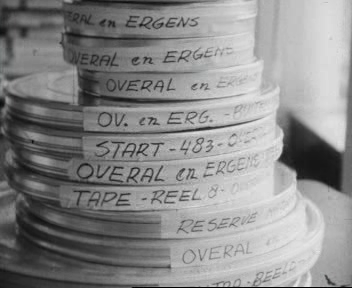 OVERAL en ERGENS
OVERAL en ERGENS
OVERAL en ERGENS
OV. en ERG. -
START - 483 -
OVERAL en ERGENS
TAPE - REEL 8 -
RESERVE
OVERAL